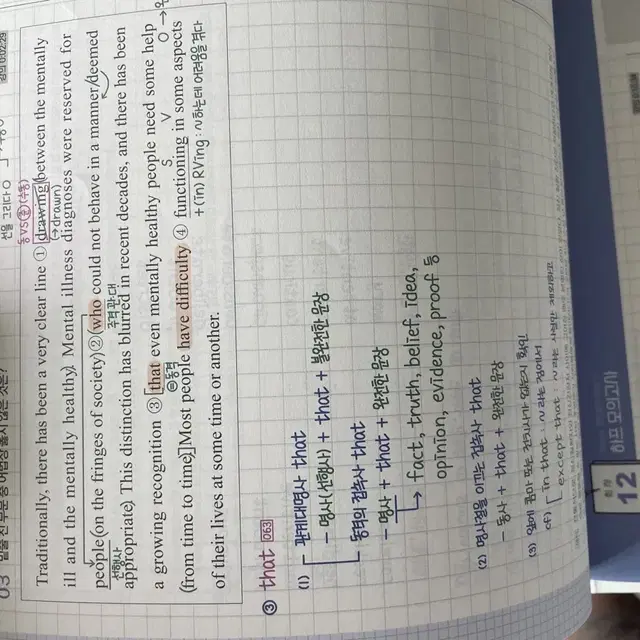 03 밑줄 친 부분 중 어법상 틀린 것은?
선을 그리다
동VS준(수동)
(→drawn)
Traditionally, there has been a very clear line ① drawing between the mentally
ill and the mentally healthy. Mental illness diagnoses were reserved for
people (on the fringes of society) ② who could not behave in a manner deemed
선행사 주격관대
appropriate. This distinction has blurred in recent decades, and there has been
a growing recognition ③ that even mentally healthy people need some help
동격
S V O
(from time to time). Most people have difficulty ④ functioning in some aspects
+(in) RVing : ~하는데 어려움을 겪다
of their lives at some time or another.
③ that 063
(1) 관계대명사 that
- 명사(선행사) + that + 불완전한 문장
동격의 접속사 that
- 명사 + that + 완전한 문장
→ fact, truth, belief, idea,
opinion, evidence, proof 등
(2) 명사절을 이끄는 접속사 that
- 동사 + that + 완전한 문장
(3) 앞에 콤마 또는 전치사가 있는지 확인
cf) in that : ~라는 점에서
except that : ~라는 사실만 제외하고
회차
12
하프 모의고사